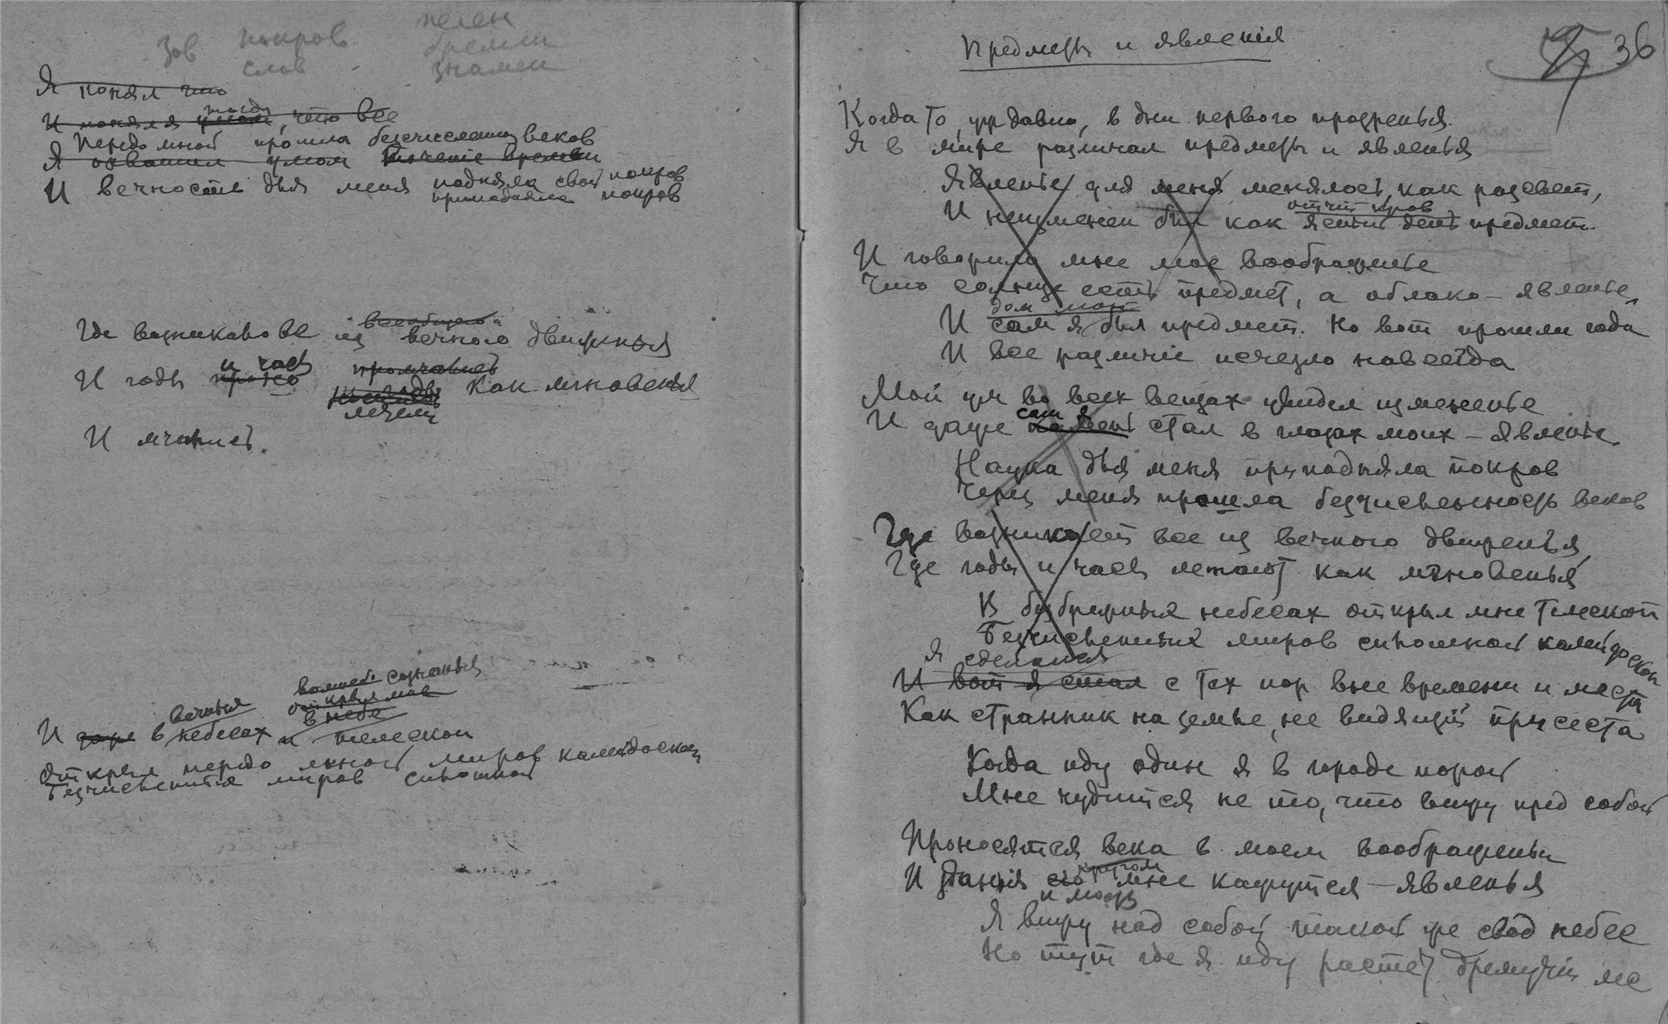 пелен
зов покров бремен
слов знамен
Я понял что
тогда
И понял я умом, что все
Передо мной прошла безчисленность веков
Я охватил умом течение времен
И вечность для меня подняла свой покров
приподняла покров
всеобщего
Где возникало все из вечного движенья
и часы промчались
И годы как мгновенья
летели
И мчались.
вечныя открыл мне
в небе
И в небесах и телескоп
Открыл передо мной миров калейдоскоп
Безчисленных миров сплошной
Предметы и явления
36
Когда то, уж давно, в дни первого прозренья
Я в мире различал предметы и явленья
Явленье для меня менялось, как рассвет,
отчий кров
И неизменен был как ясный день предмет.
И говорило мне мое воображенье
Что солнце есть предмет, а облако – явленье,
дом мой
И сам я был предмет. Но вот прошли года
И все различие исчезло навсегда
Мой ум во всех вещах увидел измененье
сам я
И даже камень стал в глазах моих – явленье
Наука для меня приподняла покров
Через меня прошла безчисленность веков
Где возникает все из вечного движенья,
Где годы и часы летают как мгновенья
В безбрежных небесах открыл мне телескоп
Безчисленных миров сплошной калейдоскоп
Я сделался
И вот я стал с тех пор вне времени и места
Как странник на земле, не видящий присеста
Когда иду один я в городе порой
Мне чудится не то, что вижу пред собой
Проносятся века в моем воображеньи
кругом
И зданья мне кажутся – явленья
и мост
Я вижу над собой такой же свод небес
Но тут где я иду растет дремучий лес